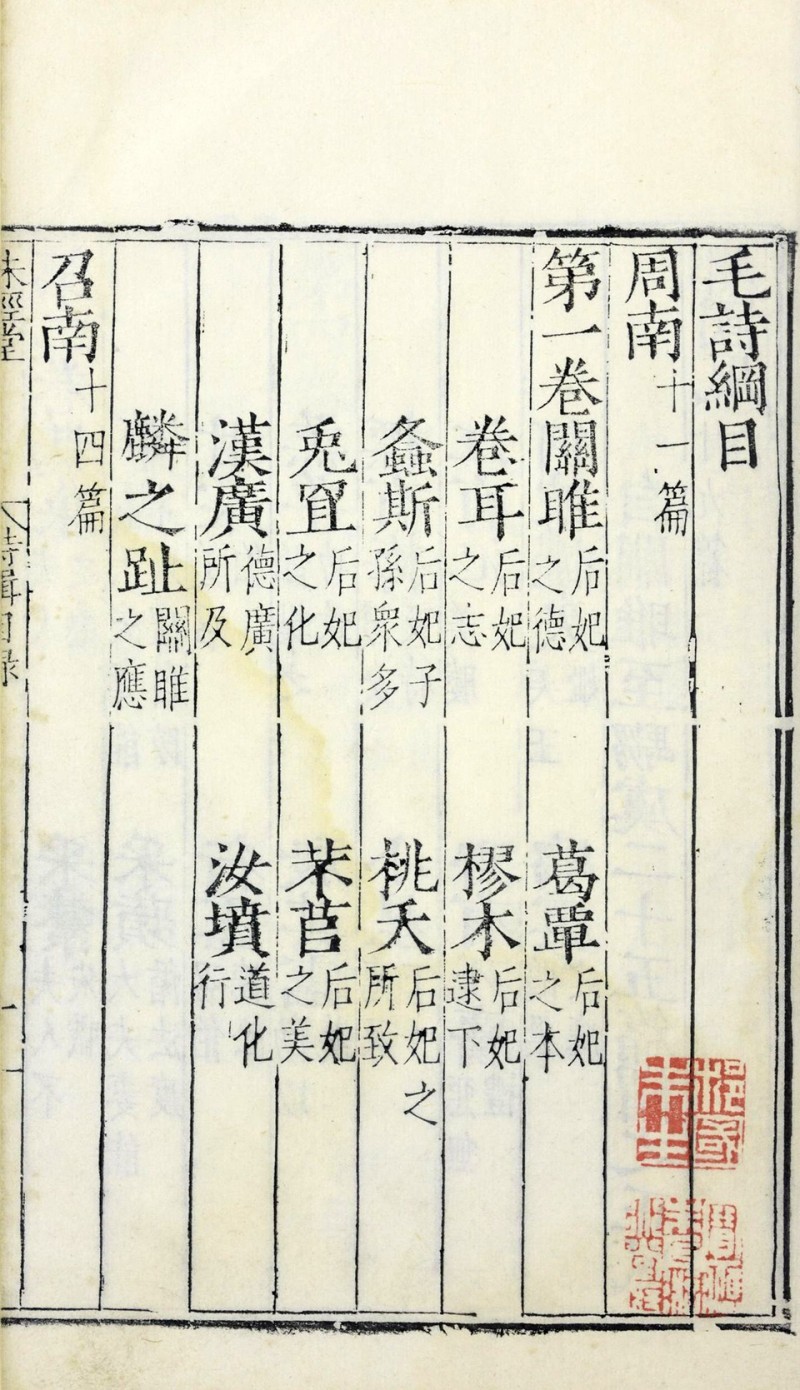 毛詩綱目
周南十一篇
第一卷關雎后妃之德 葛覃后妃之本
卷耳后妃之志 樛木后妃逮下
螽斯后妃子孫衆多 桃夭后妃之所致
兎罝后妃之化 芣苢后妃之美
漢廣德廣所及 汝墳道化行
麟之趾關雎之應
召南十四篇
味經堂
詩緝目錄
一